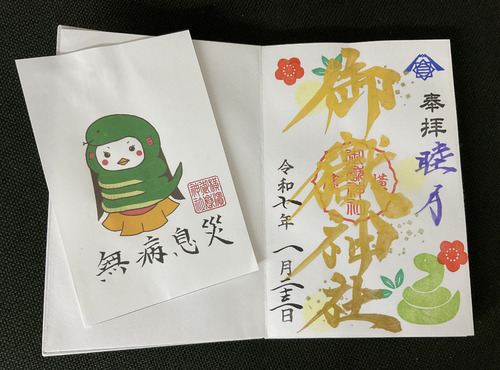 無病息災
奉拝
睦月
御嶽神社
令和七年 一月二十三日